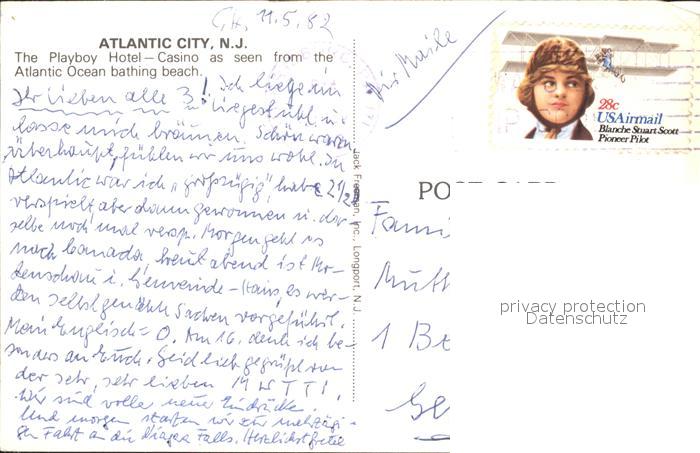 11.5.82
ATLANTIC CITY, N.J.
The Playboy Hotel — Casino as seen from the
Atlantic Ocean bathing beach.
Air Maile
28c
USAirmail
Blanche Stuart Scott
Pioneer Pilot
Ihr lieben alle 3! Ich liege im
Liegestuhl u.
lasse mich bräunen. Schön warm
überhaupt, fühlen wir uns wohl. In
Atlantic war ich „großzügig", habe
verspielt aber dann gewonnen u. das-
selbe noch mal versp. Morgen geht es
nach Canada, heut abend ist Mo-
denschau i. Gemeinde-Haus, es wer-
den selbstgenähte Sachen vorgeführt.
Mein Englisch = 0. Am 16. denk ich be-
sonders an Euch. Seid lieb gegrüßt von
der sehr, sehr lieben MUTTI!
Wir sind volle neue Eindrücke.
Und morgen starten wir zur mehrtägi-
gen Fahrt an die Niagara Falls. Herzlichst
Jack Freeman, Inc., Longport, N. J.
POST CARD
Fami
Mutt
1 Be
privacy protection
Datenschutz